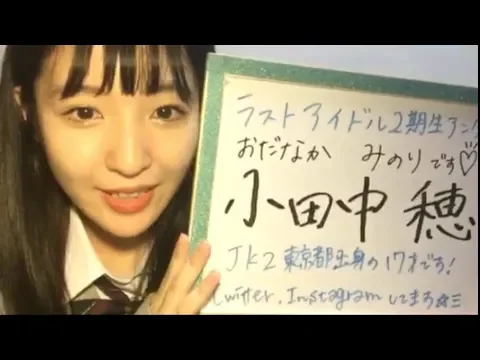 ラストアイドル2期生アン
おだなか みのりです♡
小田中 穂
JK2 東京都出身の17才です!
twitter. Instagramしてます☆彡